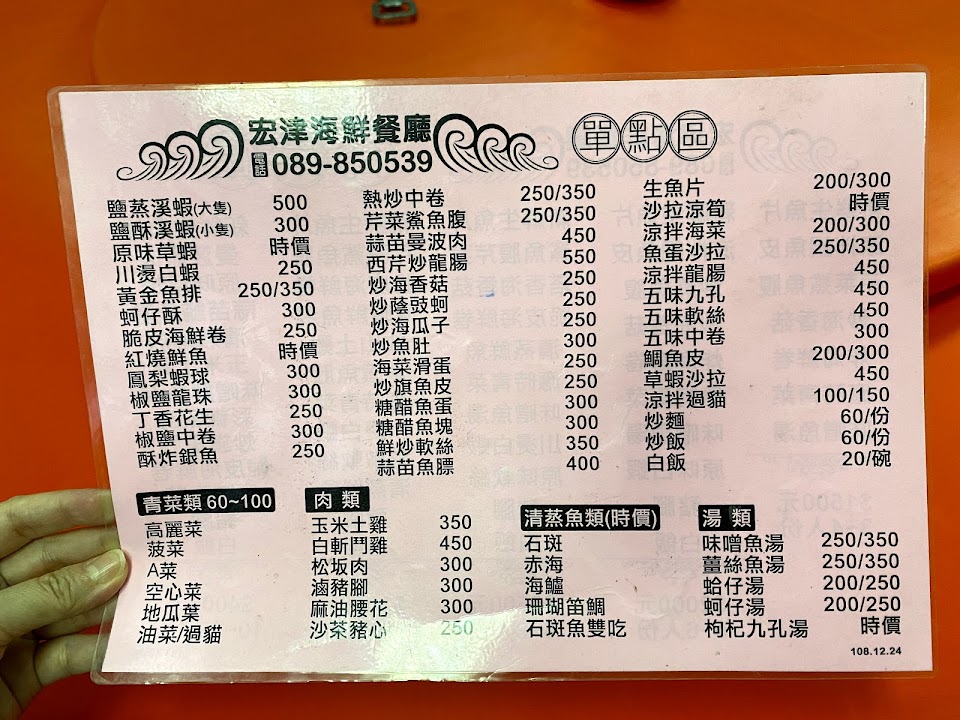 宏津海鮮餐廳
電話089-850539
單點區
鹽蒸溪蝦(大隻) 500
鹽酥溪蝦(小隻) 300
原味草蝦 時價
川燙白蝦 250
黃金魚排 250/350
蚵仔酥 300
脆皮海鮮卷 250
紅燒鮮魚 時價
鳳梨蝦球 300
椒鹽龍珠 300
丁香花生 250
椒鹽中卷 300
酥炸銀魚 250
熱炒中卷 250/350
芹菜鯊魚腹 250/350
蒜苗曼波肉 450
西芹炒龍腸 550
炒海香菇 250
炒蔭豉蚵 250
炒海瓜子 250
炒魚肚 300
海菜滑蛋 250
炒旗魚皮 250
糖醋魚蛋 300
糖醋魚塊 300
鮮炒軟絲 350
蒜苗魚膘 400
生魚片 200/300
沙拉涼筍 時價
涼拌海菜 200/300
魚蛋沙拉 250/350
涼拌龍腸 450
五味九孔 450
五味軟絲 450
五味中卷 300
鯛魚皮 200/300
草蝦沙拉 450
涼拌過貓 100/150
炒麵 60/份
炒飯 60/份
白飯 20/碗
青菜類 60~100
高麗菜
菠菜
A菜
空心菜
地瓜葉
油菜/過貓
肉 類
玉米土雞 350
白斬鬥雞 450
松坂肉 300
滷豬腳 300
麻油腰花 300
沙茶豬心 250
清蒸魚類(時價)
石斑
赤海
海鱸
珊瑚笛鯛
石斑魚雙吃
湯 類
味噌魚湯 250/350
薑絲魚湯 250/350
蛤仔湯 200/250
蚵仔湯 200/250
枸杞九孔湯 時價
108.12.24